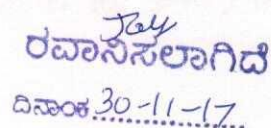 ರವಾನಿಸಲಾಗಿದೆ
ದಿನಾಂಕ 30-11-17